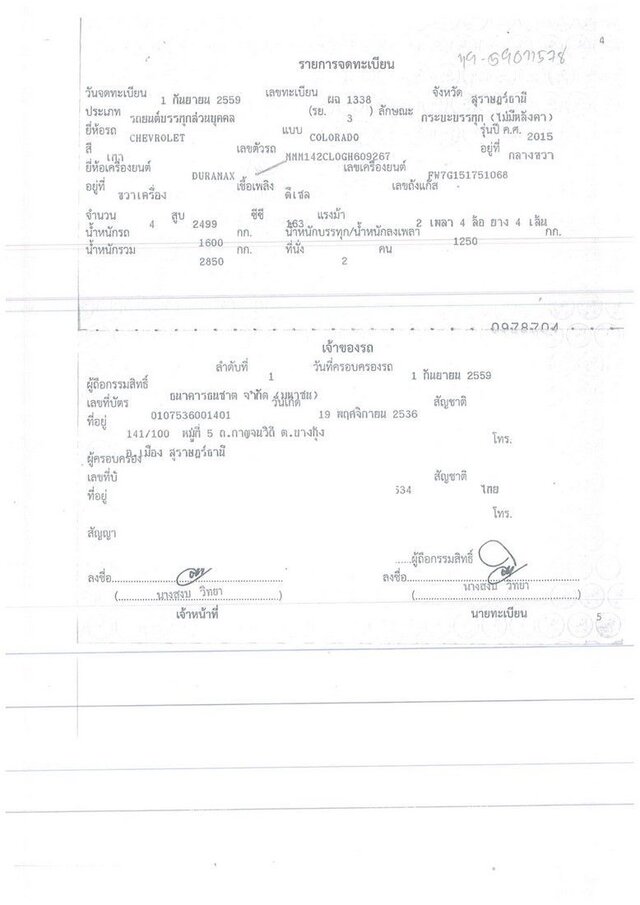 4
รายการจดทะเบียน
วันจดทะเบียน 1 กันยายน 2559 เลขทะเบียน ผฉ 1338 จังหวัด สุราษฎร์ธานี
ประเภท รถยนต์บรรทุกส่วนบุคคล (รย. 3 ) ลักษณะ กระบะบรรทุก (ไม่มีหลังคา)
ยี่ห้อรถ CHEVROLET แบบ COLORADO รุ่นปี ค.ศ. 2015
สี เทา เลขตัวรถ MMM142CLOGH609267 อยู่ที่ กลางขวา
ยี่ห้อเครื่องยนต์ DURAMAX เลขเครื่องยนต์ FW7G151751068
อยู่ที่ ขวาเครื่อง เชื้อเพลิง ดีเซล เลขถังแก๊ส
จำนวน 4 สูบ 2499 ซีซี 163 แรงม้า 2 เพลา 4 ล้อ ยาง 4 เส้น
น้ำหนักรถ 1600 กก. น้ำหนักบรรทุก/น้ำหนักลงเพลา 1250 กก.
น้ำหนักรวม 2850 กก. ที่นั่ง 2 คน
0978704
เจ้าของรถ
ลำดับที่ 1 วันที่ครอบครองรถ 1 กันยายน 2559
ผู้ถือกรรมสิทธิ์ ธนาคารธนชาต จำกัด (มหาชน)
เลขที่บัตร 0107536001401 วันเกิด 19 พฤศจิกายน 2536 สัญชาติ
ที่อยู่ 141/100 หมู่ที่ 5 ถ.กาญจนวิถี ต.บางกุ้ง โทร.
อ.เมือง สุราษฎร์ธานี
ผู้ครอบครอง
เลขที่บั 534 สัญชาติ ไทย
ที่อยู่ โทร.
สัญญา
ผู้ถือกรรมสิทธิ์
ลงชื่อ ลงชื่อ
(นางสงบ วิทยา) (นางสงบ วิทยา)
เจ้าหน้าที่ นายทะเบียน
5